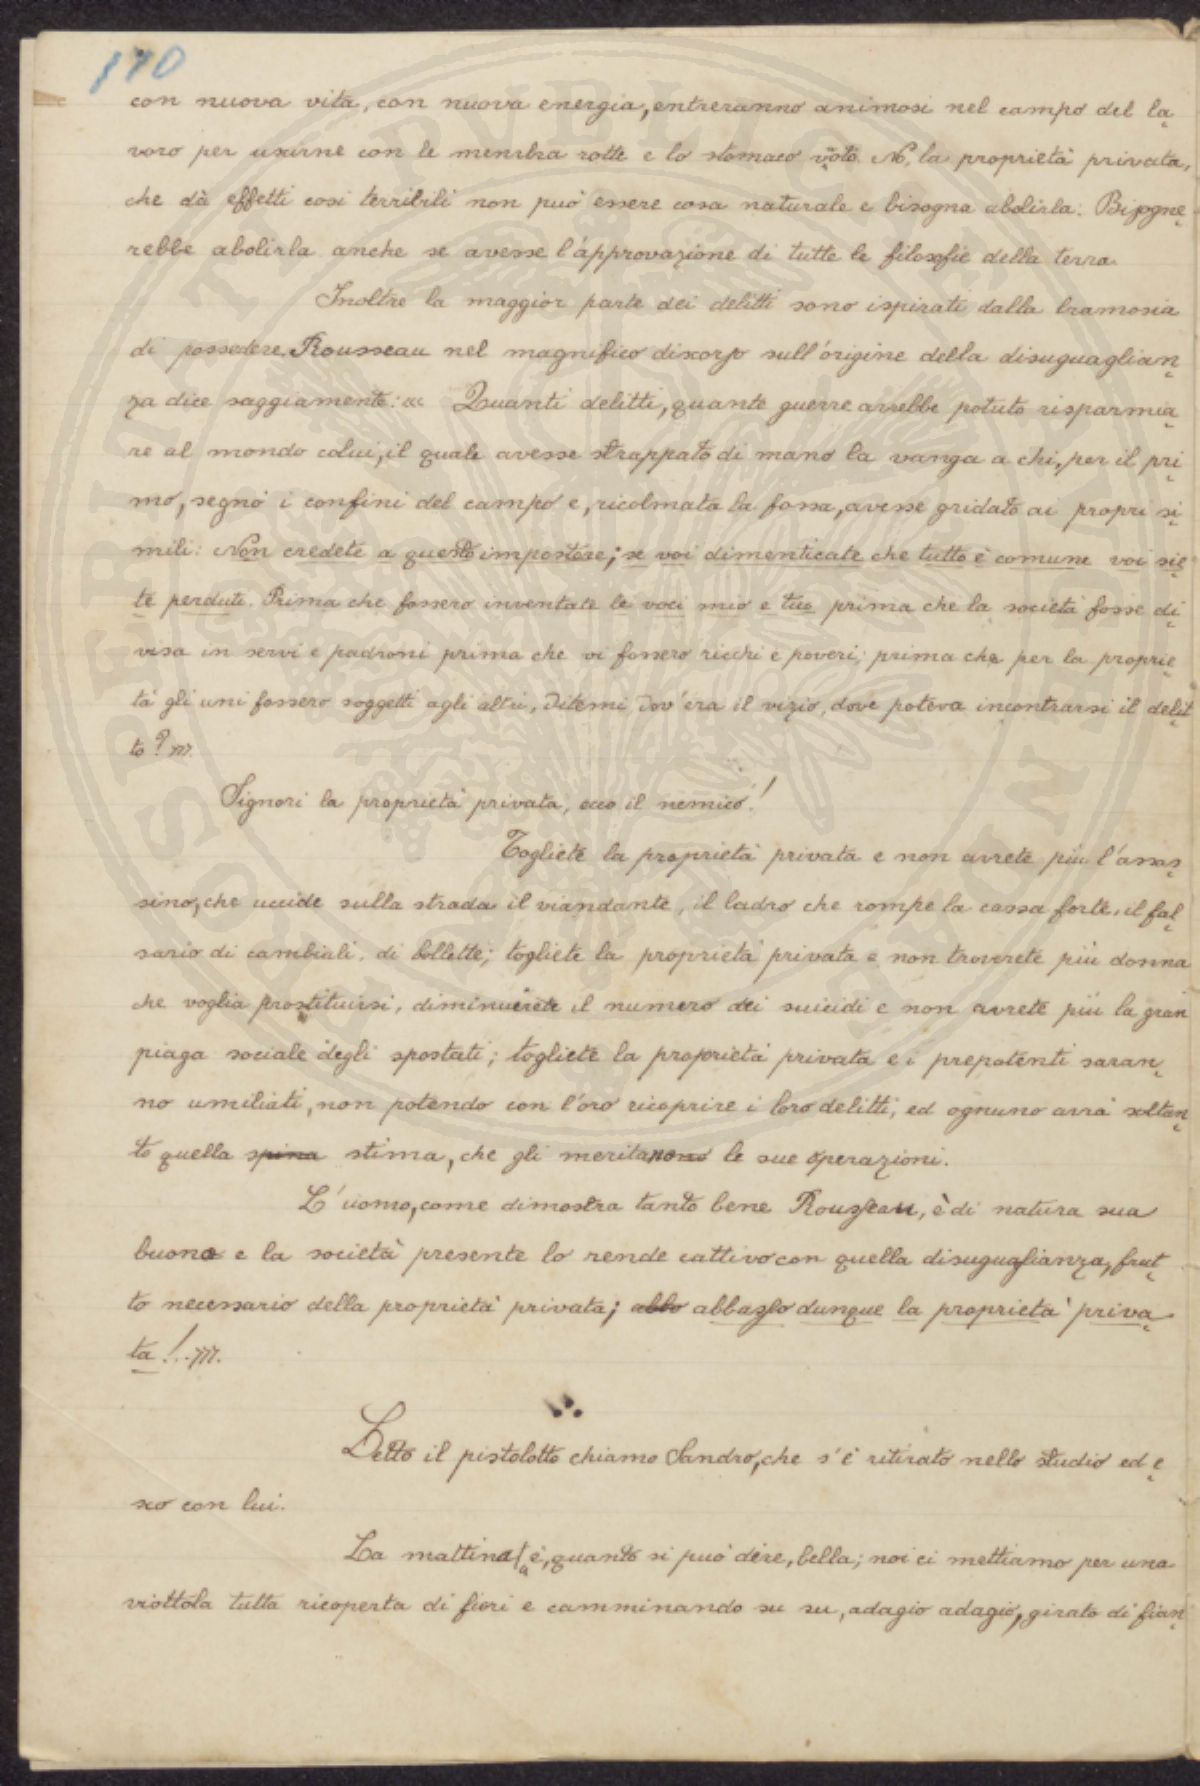 170
con nuova vita, con nuova energia, entreranno animosi nel campo del la-
voro per uscirne con le membra rotte e lo stomaco vöto. No, la proprietà privata,
che dà effetti così terribili non può essere cosa naturale e bisogna abolirla: Bisogne-
rebbe abolirla anche se avesse l'approvazione di tutte le filosofie della terra.
Inoltre la maggior parte dei delitti sono ispirati dalla bramosia
di possedere. Rousseau nel magnifico discorso sull'origine della disuguaglian-
za dice saggiamente: « Quanti delitti, quante guerre avrebbe potuto risparmia-
re al mondo colui, il quale avesse strappato di mano la vanga a chi, per il pri-
mo, segnò i confini del campo e, ricolmata la fossa, avesse gridato ai propri si-
mili: Non credete a questo impostore; se voi dimenticate che tutto è comune voi sie-
te perduti. Prima che fossero inventate le voci mio e tuo prima che la società fosse di-
visa in servi e padroni prima che vi fossero ricchi e poveri; prima che per la proprie-
tà gli uni fossero soggetti agli altri, ditemi dov'era il vizio, dove poteva incontrarsi il delit-
to? »
Signori la proprietà privata, ecco il nemico!
Togliete la proprietà privata e non avrete più l'assas-
sino, che uccide sulla strada il viandante, il ladro che rompe la cassa forte, il fal-
sario di cambiali, di bollette; togliete la proprietà privata e non troverete più donna
che voglia prostituirsi, diminuirete il numero dei suicidi e non avrete più la gran
piaga sociale degli spostati; togliete la proprietà privata e i prepotenti saran-
no umiliati, non potendo con l'oro ricoprire i loro delitti, ed ognuno avrà soltan-
to quella spina stima, che gli meritano le sue operazioni.
L'uomo, come dimostra tanto bene Rousseau, è di natura sua
buono e la società presente lo rende cattivo con quella disuguaglianza, frut-
to necessario della proprietà privata; abbo abbasso dunque la proprietà priva-
ta!.. »
Letto il pistolotto chiamo Sandro, che s'è ritirato nello studio ed e-
sco con lui.
La mattinata è, quanto si può dire, bella; noi ci mettiamo per una
viottola tutta ricoperta di fiori e camminando su su, adagio adagio, girato di fian-